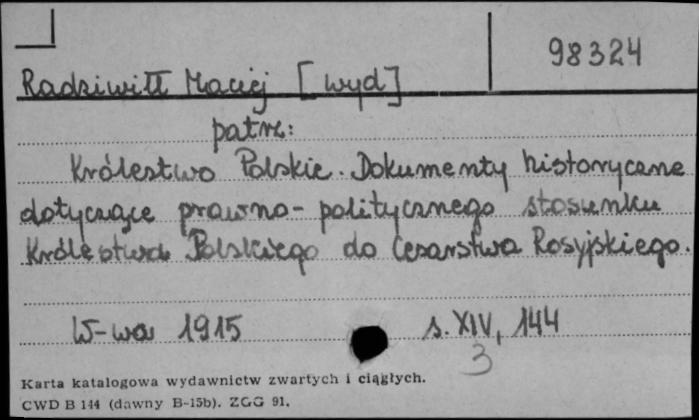 98324
Radziwiłł Maciej [wyd]
patrz:
Królestwo Polskie. Dokumenty historyczne
dotyczące prawno-politycznego stosunku
Królestwa Polskiego do Cesarstwa Rosyjskiego.
W-wa 1915 s. XIV, 144
3
Karta katalogowa wydawnictw zwartych i ciągłych.
CWD B 144 (dawny B-15b). ZGG 91.